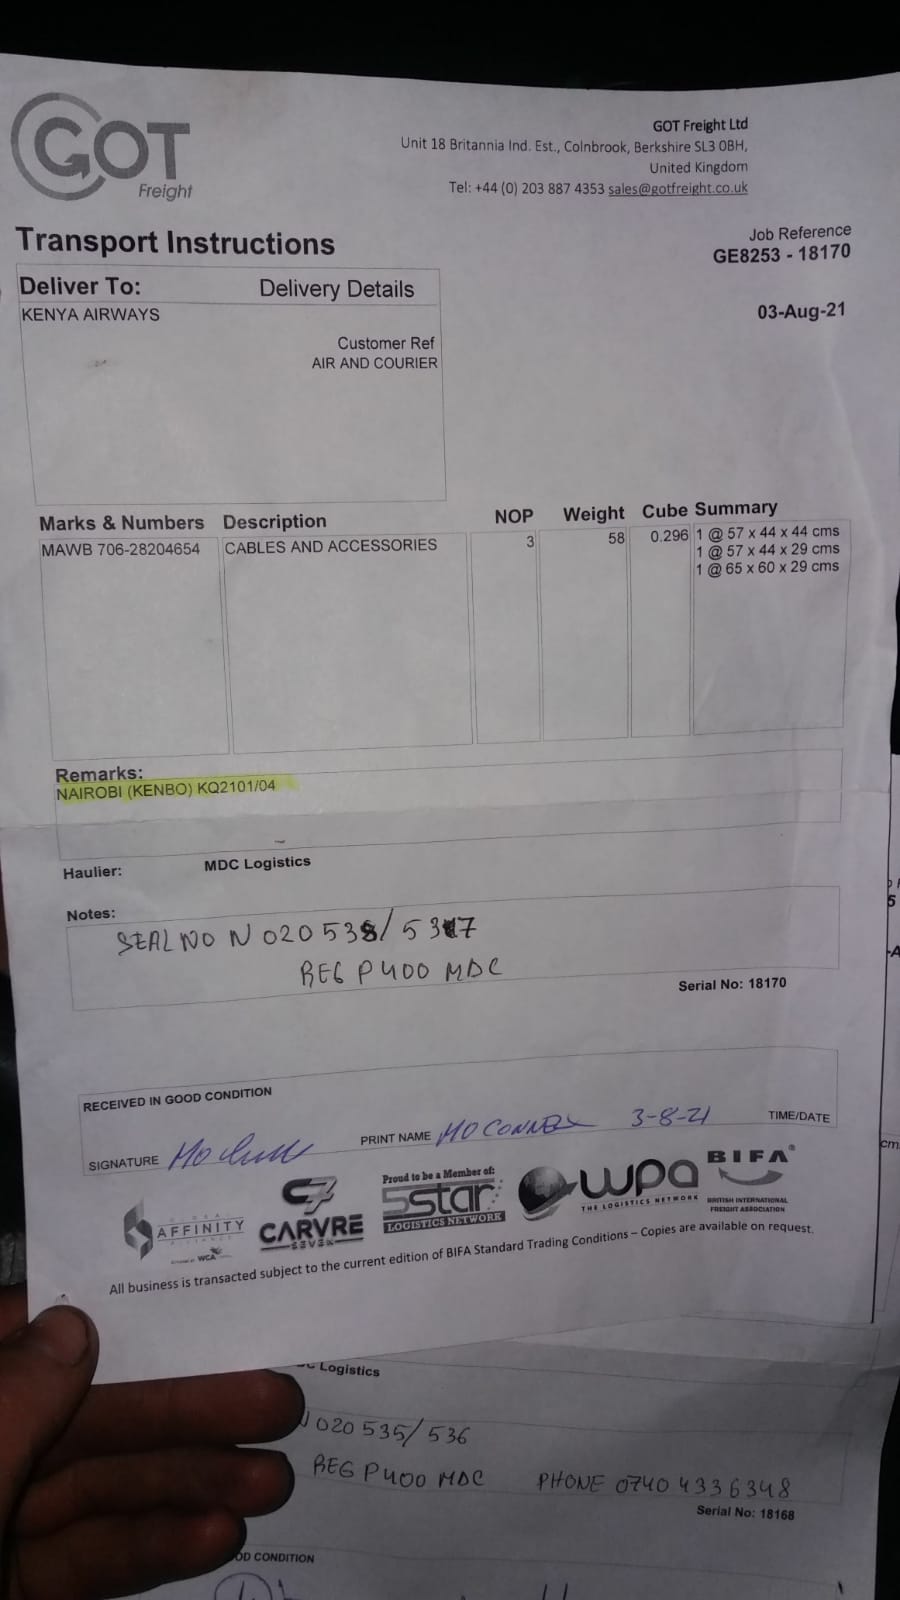 GOT
Freight
GOT Freight Ltd
Unit 18 Britannia Ind. Est., Colnbrook, Berkshire SL3 0BH,
United Kingdom
Tel: +44 (0) 203 887 4353 sales@gotfreight.co.uk
Transport Instructions
Job Reference
GE8253 - 18170
03-Aug-21
Deliver To: Delivery Details
KENYA AIRWAYS
Customer Ref
AIR AND COURIER
Marks & Numbers Description NOP Weight Cube Summary
MAWB 706-28204654 CABLES AND ACCESSORIES 3 58 0.296 1 @ 57 x 44 x 44 cms
1 @ 57 x 44 x 29 cms
1 @ 65 x 60 x 29 cms
Remarks:
NAIROBI (KENBO) KQ2101/04
Haulier: MDC Logistics
Notes:
SEAL NO N 020 538/537
REG P400 MDC
Serial No: 18170
RECEIVED IN GOOD CONDITION
SIGNATURE PRINT NAME MO CONNEL 3-8-21 TIME/DATE
AFFINITY
WCA
C7
CARVRE
SEVEN
Proud to be a Member of:
5star
LOGISTICS NETWORK
wpa
THE LOGISTICS NETWORK
BIFA®
BRITISH INTERNATIONAL
FREIGHT ASSOCIATION
All business is transacted subject to the current edition of BIFA Standard Trading Conditions – Copies are available on request.
Logistics
020 535/536
REG P400 MDC PHONE 0740 4336348
Serial No: 18168
OD CONDITION